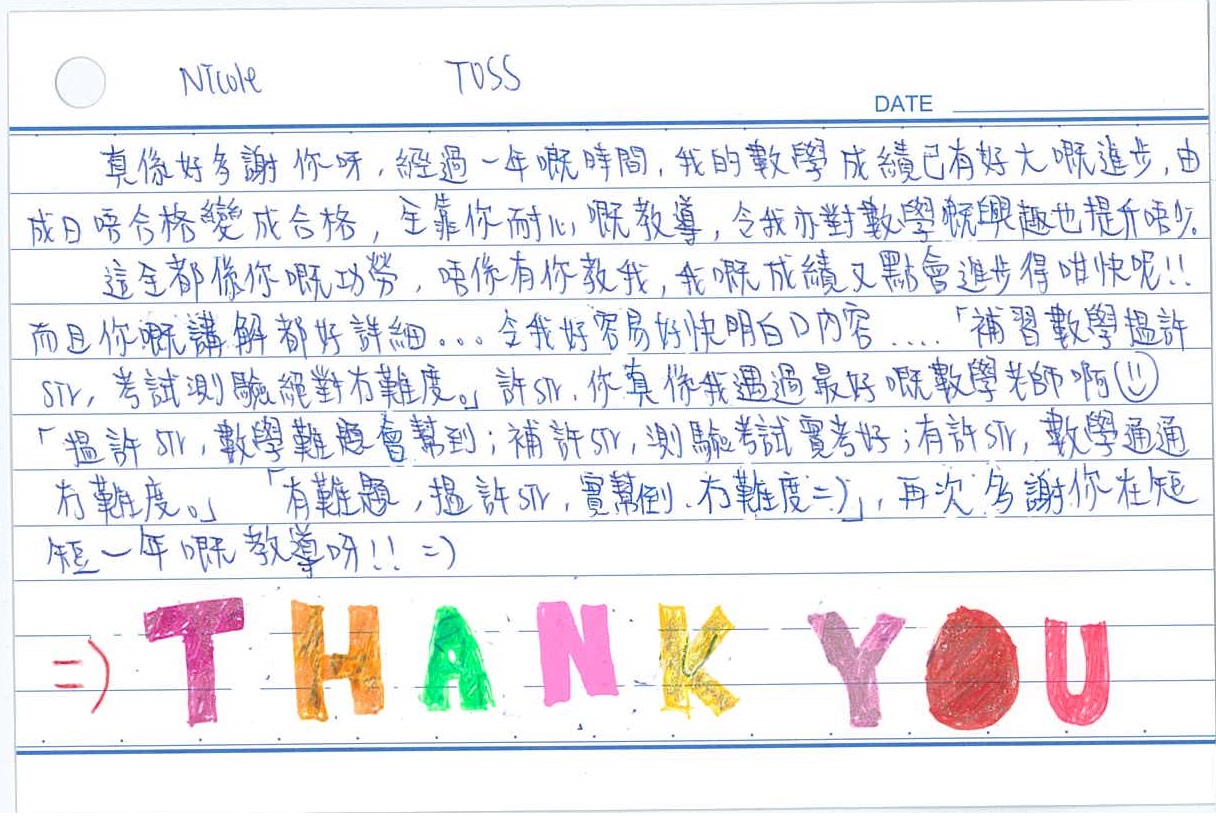 Nicole TOSS
DATE
真係好多謝你呀,經過一年嘅時間,我的數學成績已有好大嘅進步,由
成日唔合格變成合格,全靠你耐心嘅教導,令我亦對數學嘅興趣也提升唔少。
這全都係你嘅功勞,唔係有你教我,我嘅成績又點會進步得咁快呢!!
而且你嘅講解都好詳細...令我好容易好快明白D內容.....「補習數學搵許
sir,考試測驗絕對冇難度。」許sir,你真係我遇過最好嘅數學老師啊
「搵許sir,數學難題會幫到;補許sir,測驗考試實考好;有許sir,數學通通
冇難度。」「有難題,搵許sir,實幫倒、冇難度=)」,再次多謝你在短
短一年嘅教導呀!! =)
=) THANK YOU